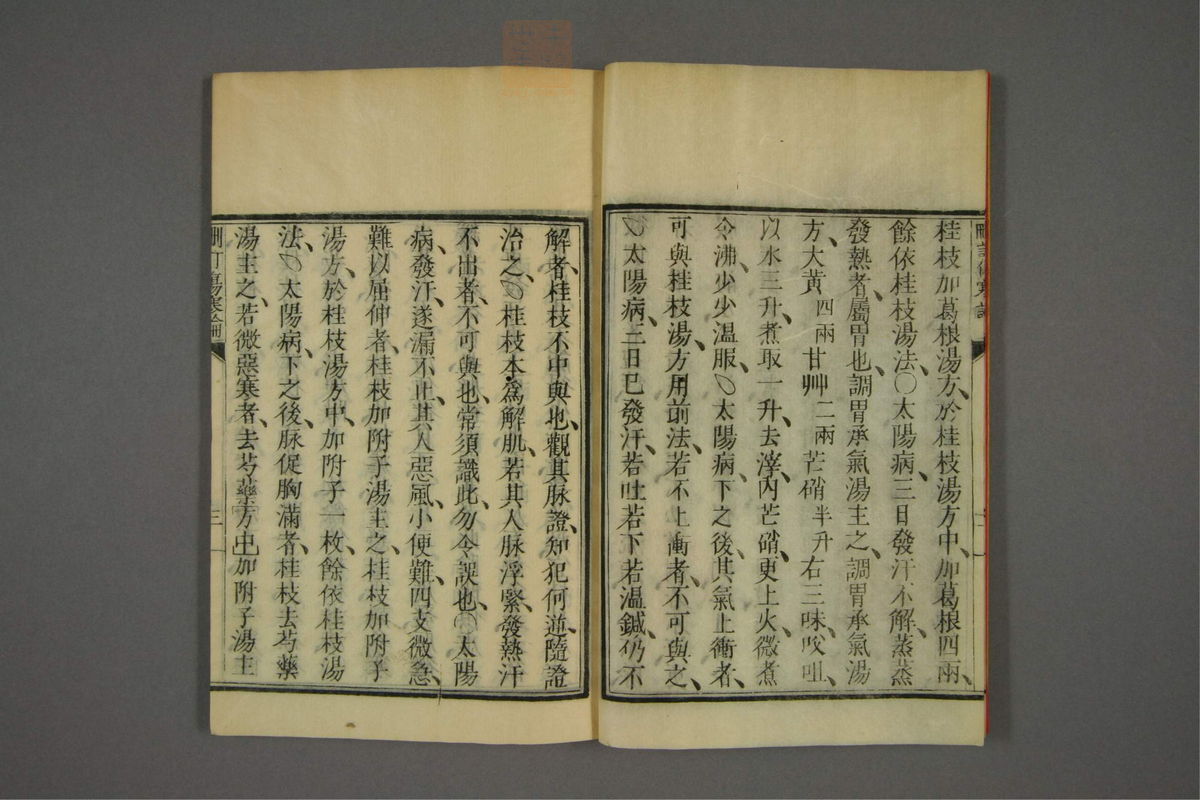 桂枝加葛根湯方、於桂枝湯方中、加葛根四兩、
餘依桂枝湯法、〇太陽病、三日發汗不解、蒸蒸
發熱者、屬胃也、調胃承氣湯主之、調胃承氣湯
方、大黃四兩甘艸二兩芒硝半升右三味、㕮咀、
以水三升、煮取一升、去滓、內芒硝、更上火、微煮
令沸、少少溫服、〇太陽病、下之後、其氣上衝者、
可與桂枝湯、方用前法、若不上衝者、不可與之、
〇太陽病、三日已發汗、若吐、若下、若溫鍼、仍不
解者、桂枝不中與也、觀其脉證、知犯何逆、隨證
治之、〇桂枝本爲解肌、若其人脉浮緊、發熱汗
不出者、不可與也、常須識此、勿令誤也、〇太陽
病、發汗、遂漏不止、其人惡風、小便難、四支微急、
難以屈伸者、桂枝加附子湯主之、桂枝加附子
湯方、於桂枝湯方中、加附子一枚、餘依桂枝湯
法、〇太陽病、下之後、脉促胸滿者、桂枝去芍藥
湯主之、若微惡寒者、去芍藥方中、加附子湯主
刪訂傷寒論
三